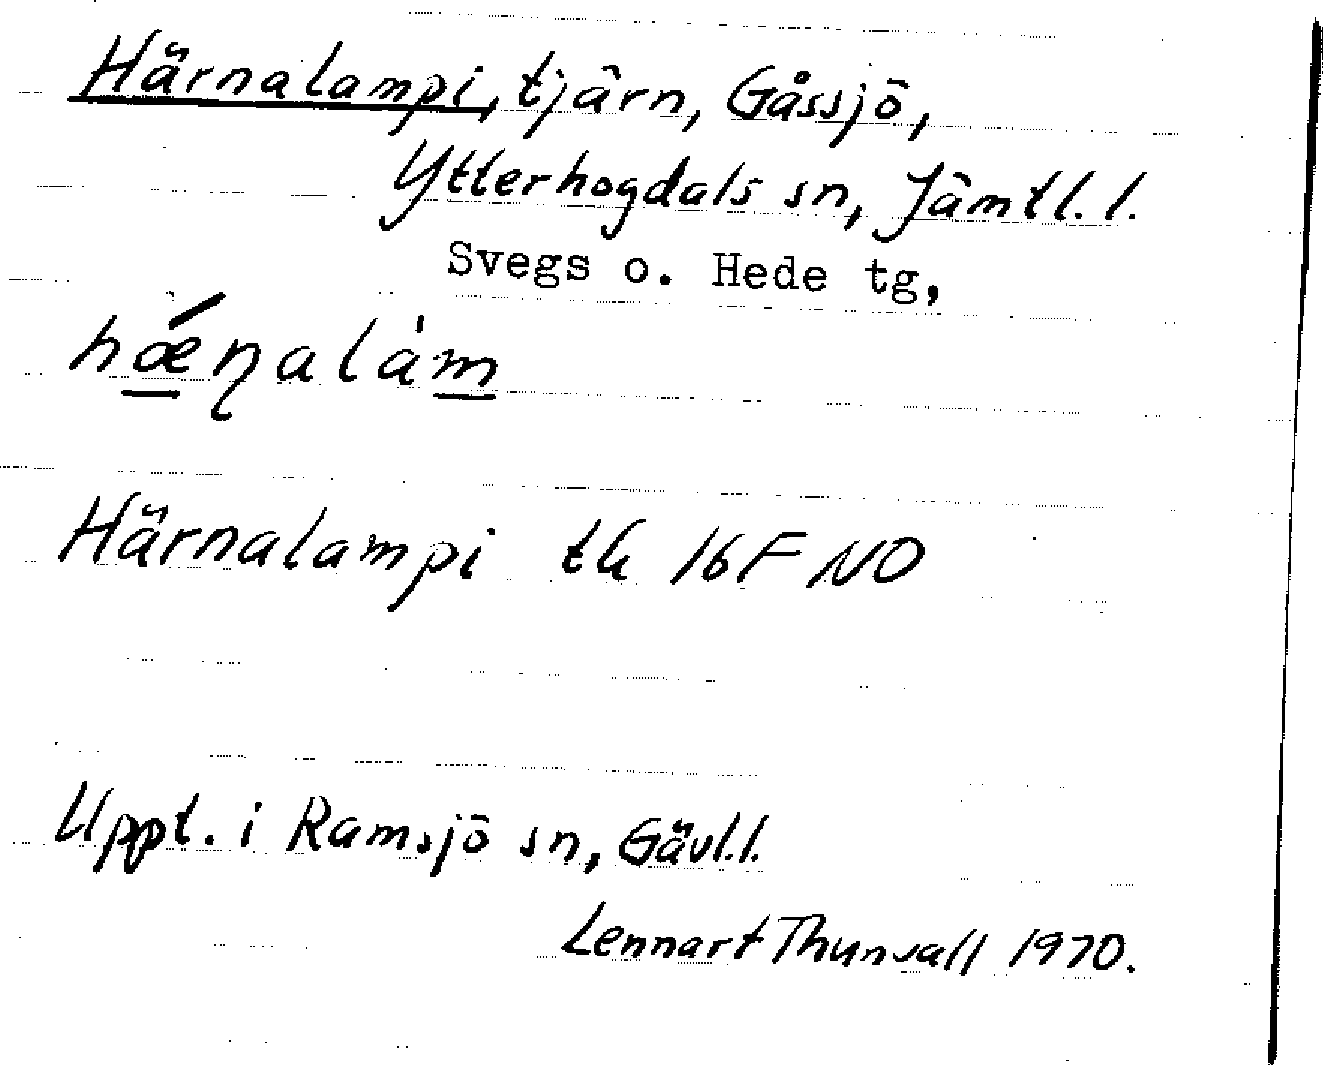 Härnalampi, tjärn, Gåssjö,
Ytterhogdals sn, Jämtl. l.
Svegs o. Hede tg,
hǽ̱ɳalàm̱
Härnalampi tk 16F NO
Uppt. i Ramsjö sn, Gävl.l.
Lennart Thunvall 1970.